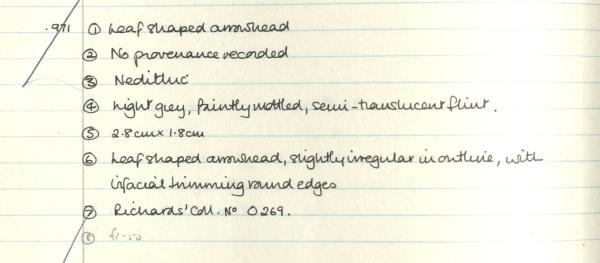 .971 ① Leaf shaped arrowhead
② No provenance recorded
③ Neolithic
④ Light grey, faintly mottled, semi-translucent flint.
⑤ 2.8cm x 1.8cm
⑥ Leaf shaped arrowhead, slightly irregular in outline, with
bifacial trimming round edges
⑦ Richards' Coll. No 0269.
⑧